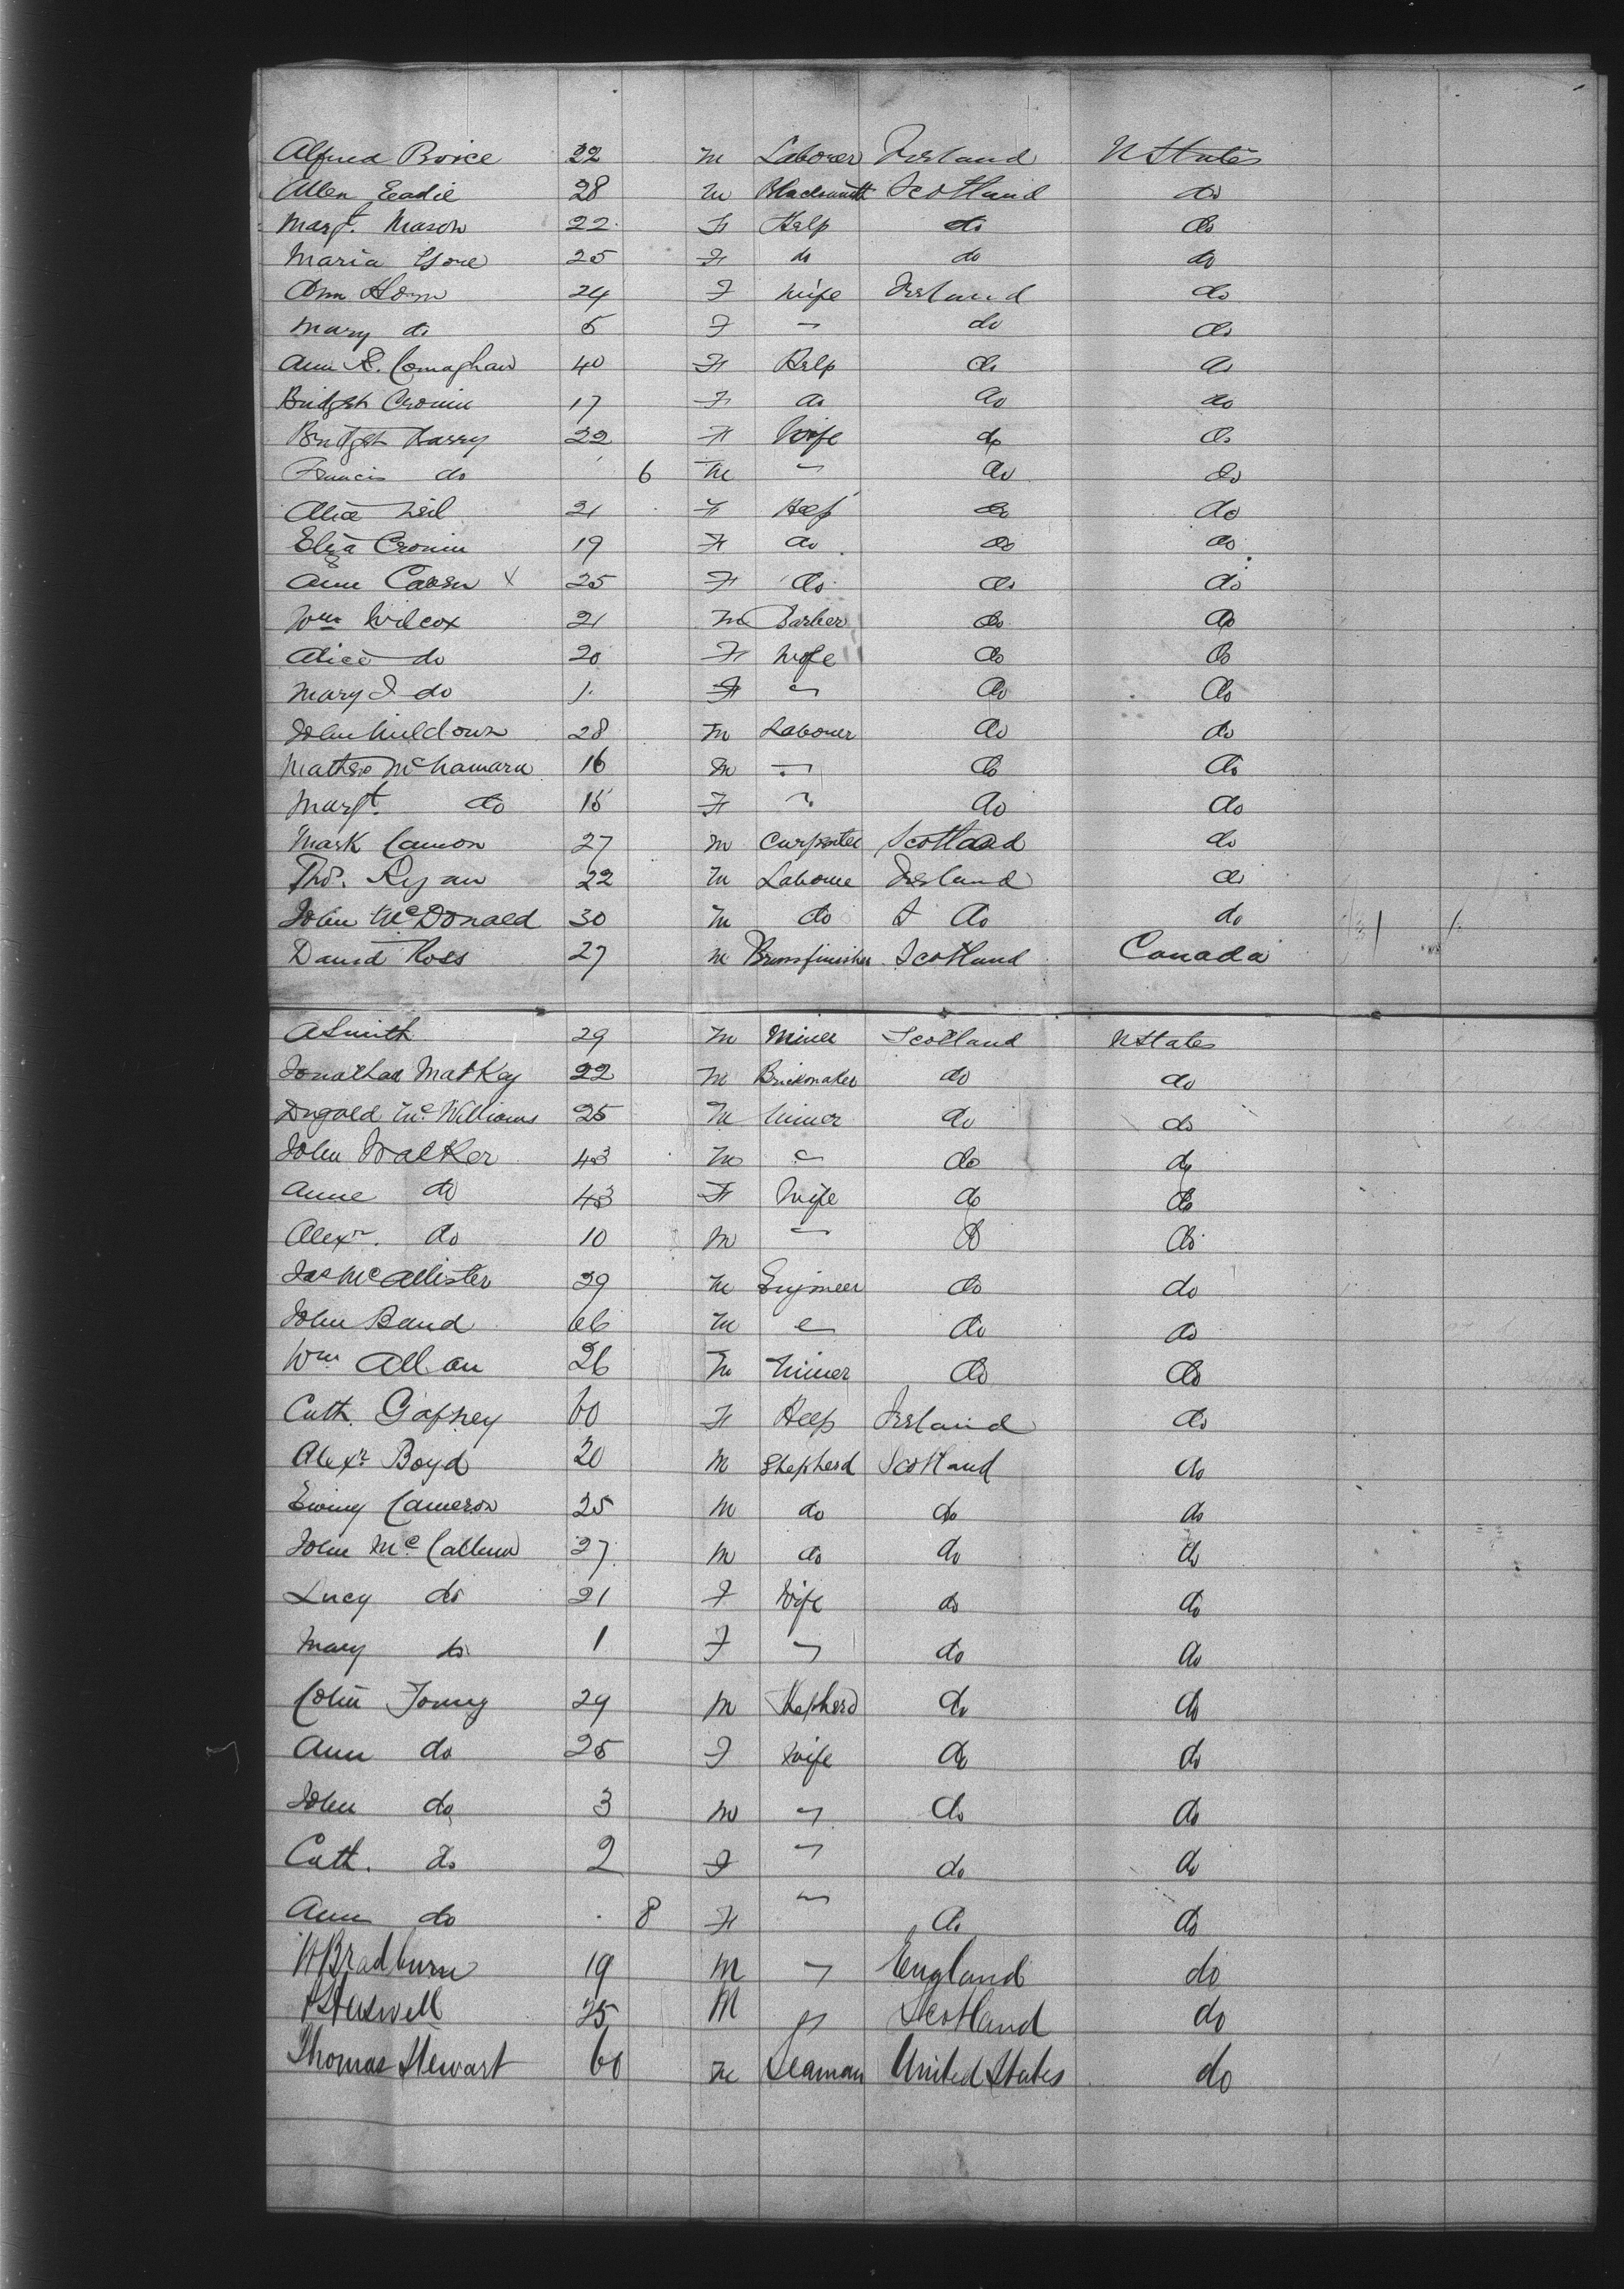 Alfred Boice 22 M Laborer Ireland U States
Allen Eadie 28 M Blacksmith Scotland do
Margt. Mason 22 F Help do do
Maria Gore 25 F do do do
Ann Horn 24 F Wife Ireland do
Mary do 5 F " do do
Ann R. Comaghan 40 F Help do do
Bridget Cronin 17 F do do do
Bridget 22 F Wife do do
Francis do 6 M " do do
Alice Neil 21 F Help do do
Eliza Cronin 19 F do do do
Ann X 25 F do do do
Wm Wilcox 21 M Barber do do
Alice do 20 F Wife do do
Mary J do 1 F " do do
John Muldown 28 M Laborer do do
Mathew McNamara 16 M " do do
Margt. do 15 F " do do
Mark Camon 27 M Carpenter Scotland do
Thos. Ryan 22 M Laborer Ireland do
John McDonald 30 M do do do
David Ross 27 M Brassfinisher Scotland Canada
A Smith 29 M Miner Scotland U States
Jonathan MatKay 22 M do do
Dugald McWilliams 25 M Miner do do
John Walker 43 M " do do
Anne do 43 F Wife do do
Alexr. do 10 M " do do
Jas McAllister 29 M Engineer do do
John Band 66 M " do do
Wm Allan 26 M Miner do do
Cath. Gafney 60 F Help Ireland do
Alexr Boyd 20 M Shepherd Scotland do
Ewing Cameron 25 M do do do
John McCallum 27 M do do do
Lucy do 21 F Wife do do
Mary do 1 F " do do
Colin Young 29 M Shepherd do do
Ann do 25 F Wife do do
John do 3 M " do do
Cath. do 2 F " do do
Ann do 8 F " do do
W Bradburn 19 M " England do
25 M " Scotland do
Thomas Stewart 60 M Seaman United States do